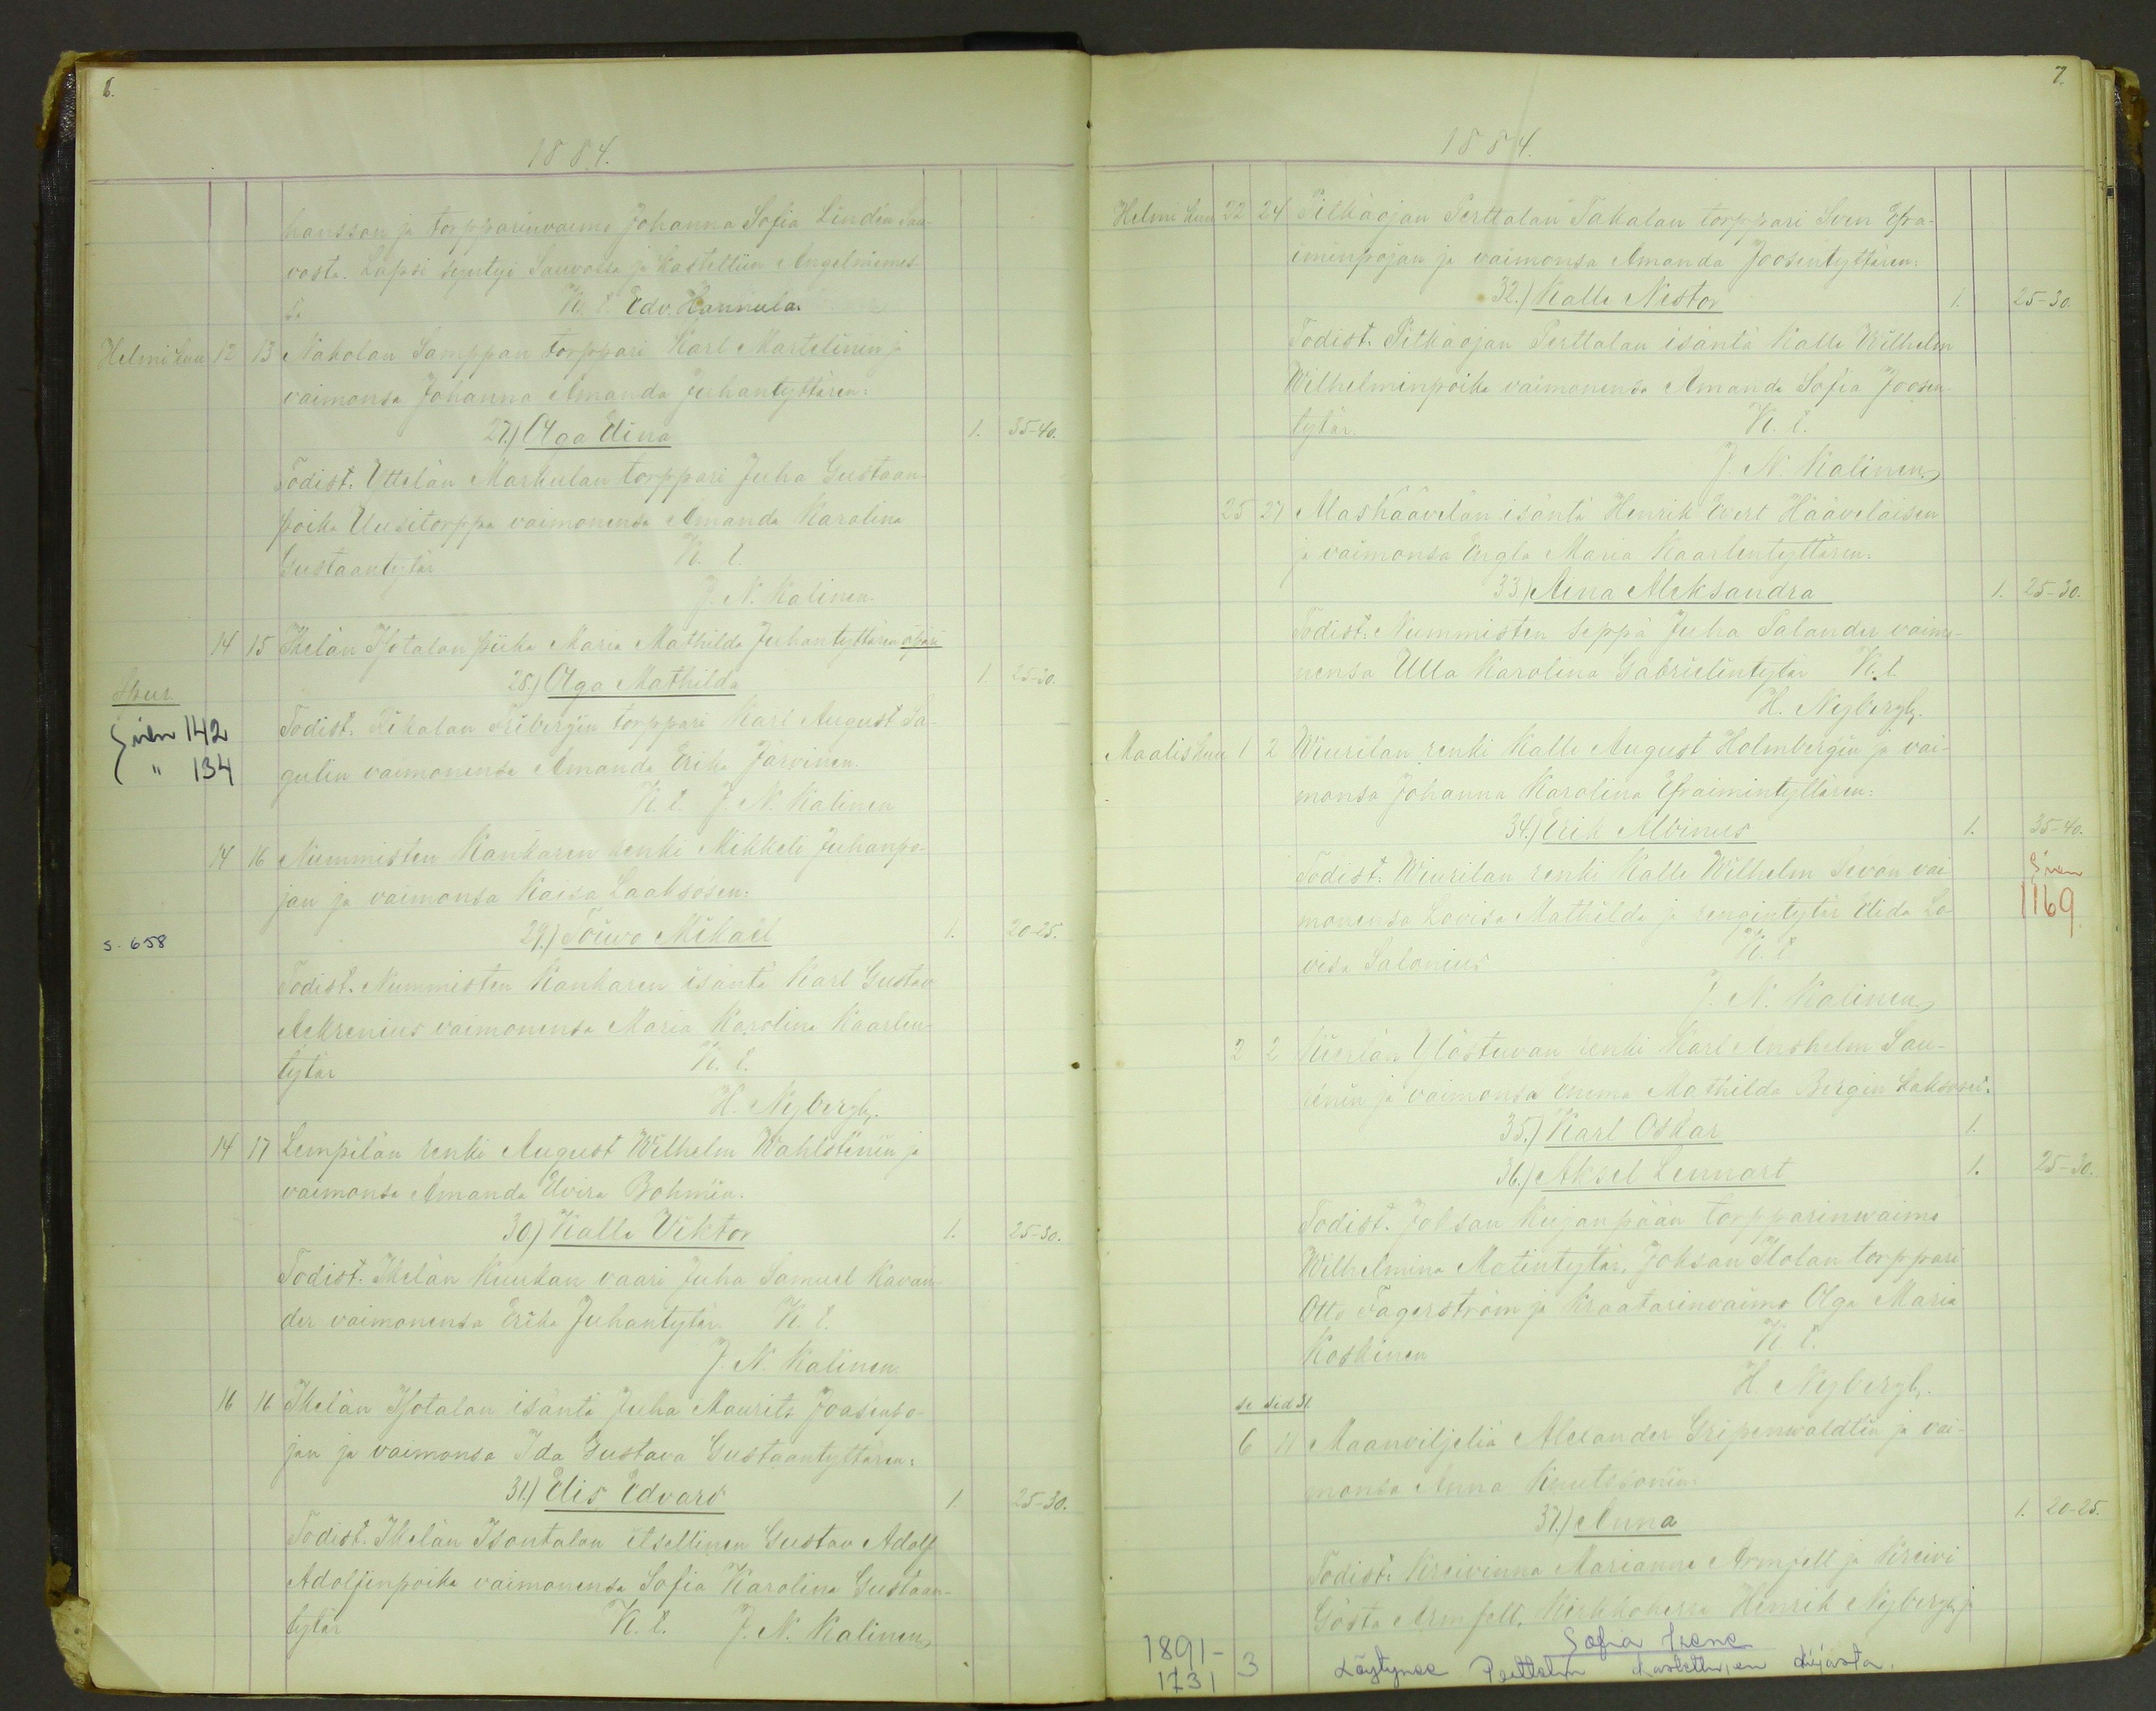 6.
1884.
hansson ja torpparinvaimo Johanna Sofia Lindén Sau-
vosta. Lapsi syntyi Sauvossa ja kastettiin Angelniemes-
sä K. t. Edv. Hannula.
Helmikuu 12 13 Nakolan Samppan torppari Karl Martelinin ja
vaimonsa Johanna Amanda Juhantyttären:
27.) Olga Elina 1. 35-40.
Todist. Yttelän Markulan torppari Juha Gustaan-
poika Uusitorppa vaimonensa Amanda Karolina
Gustaantytär K. t.
J. N. Kalinen.
14 15 Ikelän Isotalon piika Maria Mathilda Juhantyttären äpärä
28.) Olga Mathilda 1. 25-30.
Siven 142
" 134
Todist. Rikalan Fribergin torppari Karl August Sa-
gulin vaimonensa Amanda Erika Järvinen.
K. t. J. N. Kalinen
14 16 Nummisten Kankaren renki Mikkeli Juhanpo-
jan ja vaimonsa Kaisa Laaksosen:
s. 658 29.) Toiwo Mikael 1. 20-25.
Todist. Nummisten Kankaren isäntä Karl Gustav
Aekrenius vaimonensa Maria Karolina Kaarlen-
tytär K. t.
H. Nybergh.
14 17 Lempilän renki August Wilhelm Wahlsténin ja
vaimonsa Amanda Elvira Bohmin.
30.) Kalle Viktor 1. 25-30.
Todist. Ikelän Kuukan vaari Juha Samuel Kavan-
der vaimonensa Erika Juhantytär K. t.
J. N. Kalinen.
16 16 Ikelän Isotalon isäntä Juha Maurits Joosenpo-
jan ja vaimonsa Ida Gustava Gustaantyttären:
31.) Elis Edvard 1. 25-30.
Todist. Ikelän Isontalon itsellinen Gustav Adolf
Adolfinpoika vaimonensa Sofia Karolina Gustaan-
tytär K. t. J. N. Kalinen
7.
1884.
Helmikuu 22 24 Pitkäojan Perttalan Takalan torppari Sven Efra-
iminpojan ja vaimonsa Amanda Joosentyttären:
32.) Kalle Nestor 1. 25-30.
Todist. Pitkäojan Perttalan isäntä Kalle Wilhelm
Wilhelminpoika vaimonensa Amanda Sofia Joosen-
tytär. K. t.
J. N. Kalinen
25 27 Alashäävelän isäntä Henrik Evert Hääveläisen
ja vaimonsa Engla Maria Kaarlentyttären.
33.) Aina Aleksandra 1. 25-30.
Todist. Nummisten seppä Juha Salander vaimo-
nensa Ulla Karolina Gabrielintytär K. t.
H. Nybergh.
Maaliskuu 1 2 Wiurilan renki Kalle August Holmbergin ja vai-
monsa Johanna Karolina Efraimintyttären:
34.) Erik Albinus 1. 35-40.
Siven
1169
Todist. Wiurilan renki Kalle Wilhelm Sevón vai
monensa Lovisa Mathilda ja rengintytär Elida Lo
visa Salonius K. t.
J. N. Kalinen
2 2 Yöstuvan renki Karl Anshelm Lau-
rénin ja vaimonsa Emma Mathilda Bergin kaksoset.
35.) Karl Oskar 1.
36.) Aksel Lennart 1. 25-30.
Todist. Joksan Kujanpään torpparinwaimo
Wilhelmina Matintytär, Joksan Ilolan torppari
Otto Fagerström ja Kraatarinvaimo Olga Maria
Koskinen K. t.
H. Nybergh.
6 11 Maanviljeliä Alexander Gripenwaldtin ja vai-
monsa Anna Knutssonin:
37.) Anna 1. 20-25.
Todist: Kreivinna Marianne Armfelt ja Kreivi
Gösta Armfelt, Kirkkoherra Henrik Nybergh ja
1891-
1731 3 Sofia Irene
Löytynee Perttelin kastettujen kirjasta.